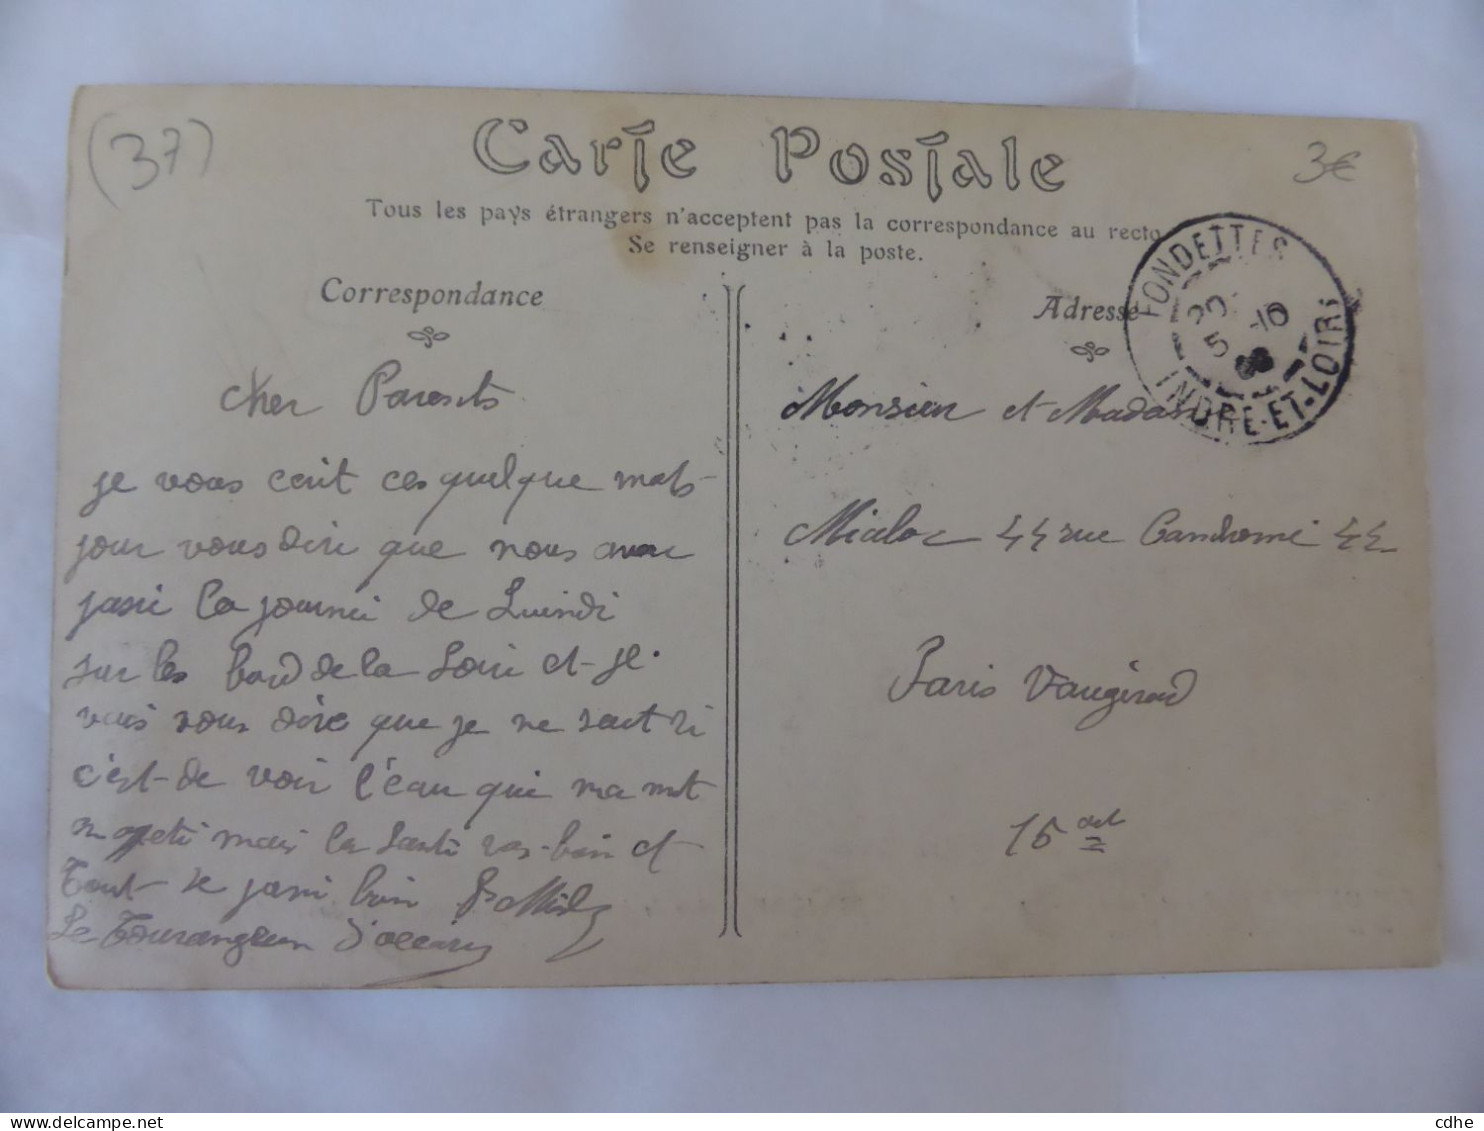 (37)
3€
Carte Postale
Tous les pays étrangers n'acceptent pas la correspondance au recto
Se renseigner à la poste.
Correspondance
cher Parents
je vous ecrit ces quelque mots
pour vous dire que nous avon
passé la journé de Luindi
sur les bord de la Loire et je
vais vous dire que je ne sait si
c'est de voir l'eau qui ma met
mais la santé vas bien et
Tout se passe bien
Le Tourangeau d'occasion
Adresse
FONDETTES
20
5 -10
08
INDRE-ET-LOIRE
Monsieur et Madame
44 rue 44
Paris Vaugirard
15
cdhe